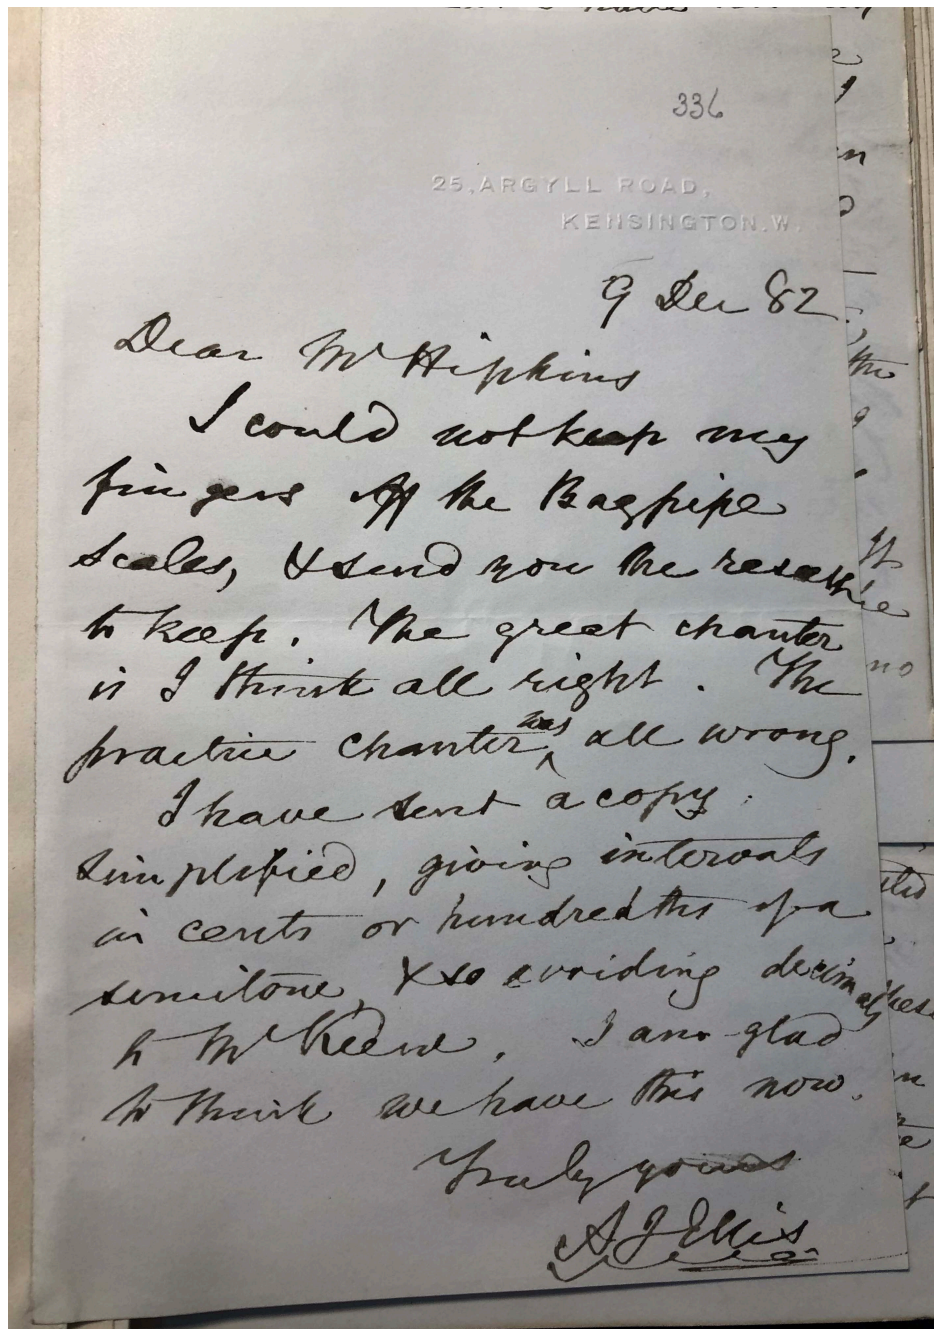 336
25, ARGYLL ROAD,
KENSINGTON. W.
9 Dec 82
Dear Mr Hipkins
I could not keep my
fingers off the Bagpipe
scales, & send you the result
to keep. The great chanter
is I think all right. The
practice chanter was all wrong.
I have sent a copy
simplified, giving intervals
in cents or hundredths of a
semitone, & so avoiding decimals,
to Mr Keene. I am glad
to think we have this now.
Truly yours
A J Ellis